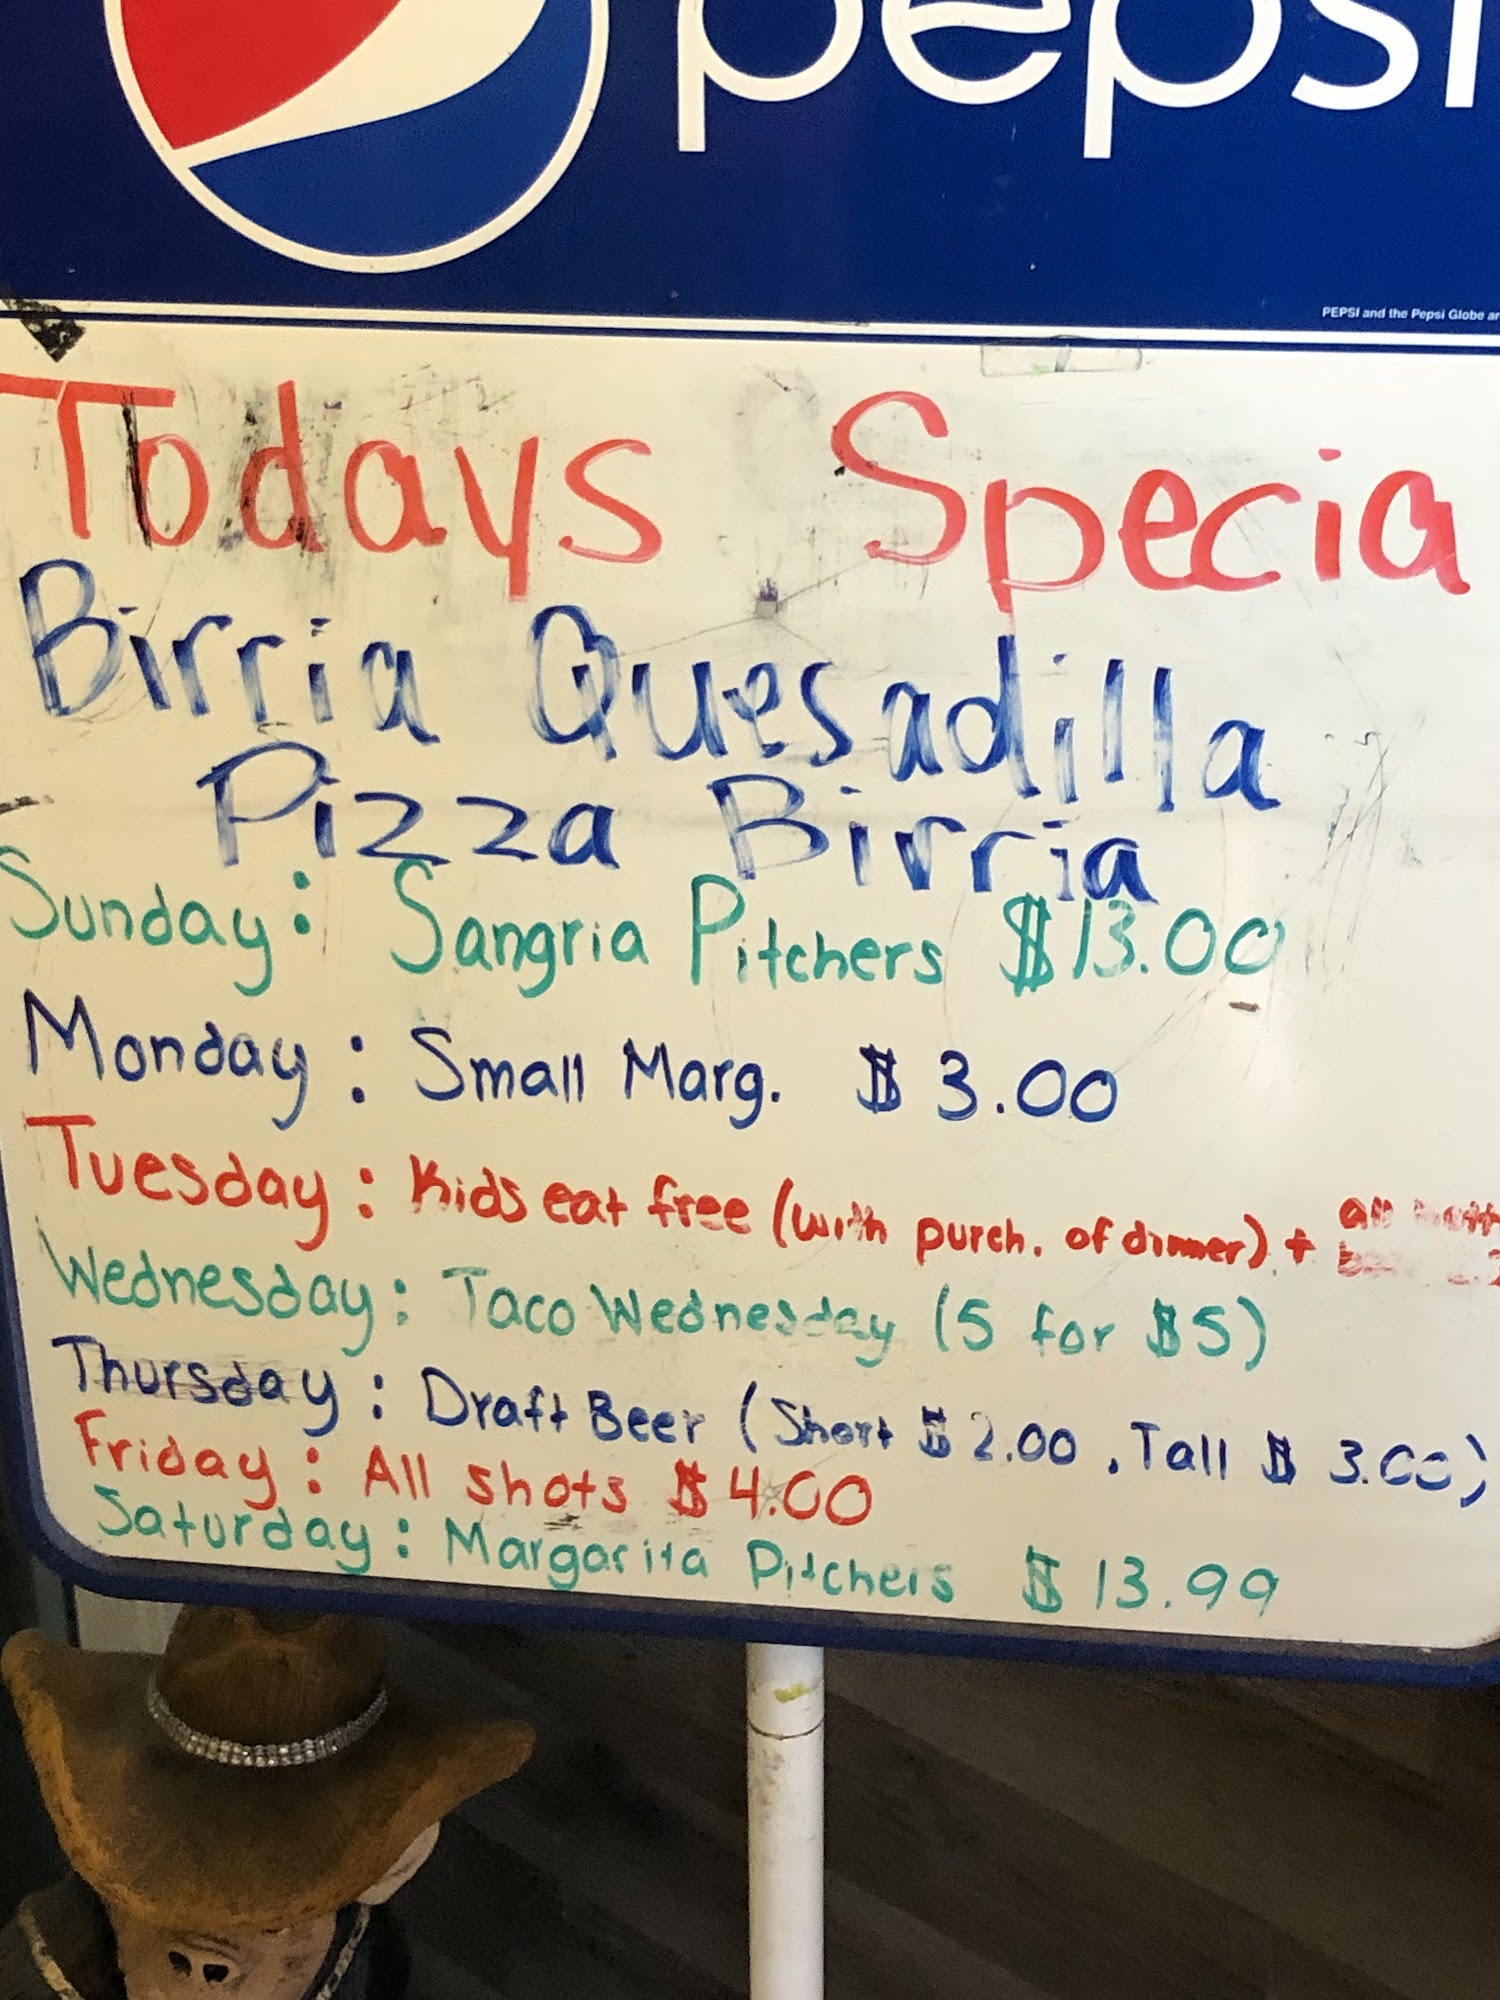 pepsi
PEPSI and the Pepsi Globe ar
Todays Specia
Birria Quesadilla
Pizza Birria
Sunday: Sangria Pitchers $13.00
Monday: Small Marg. $3.00
Tuesday: Kids eat free (with purch. of dinner) + all
Wednesday: Taco Wednesday (5 for $5)
Thursday: Draft Beer (Short $2.00, Tall $3.00)
Friday: All shots $4.00
Saturday: Margarita Pitchers $13.99